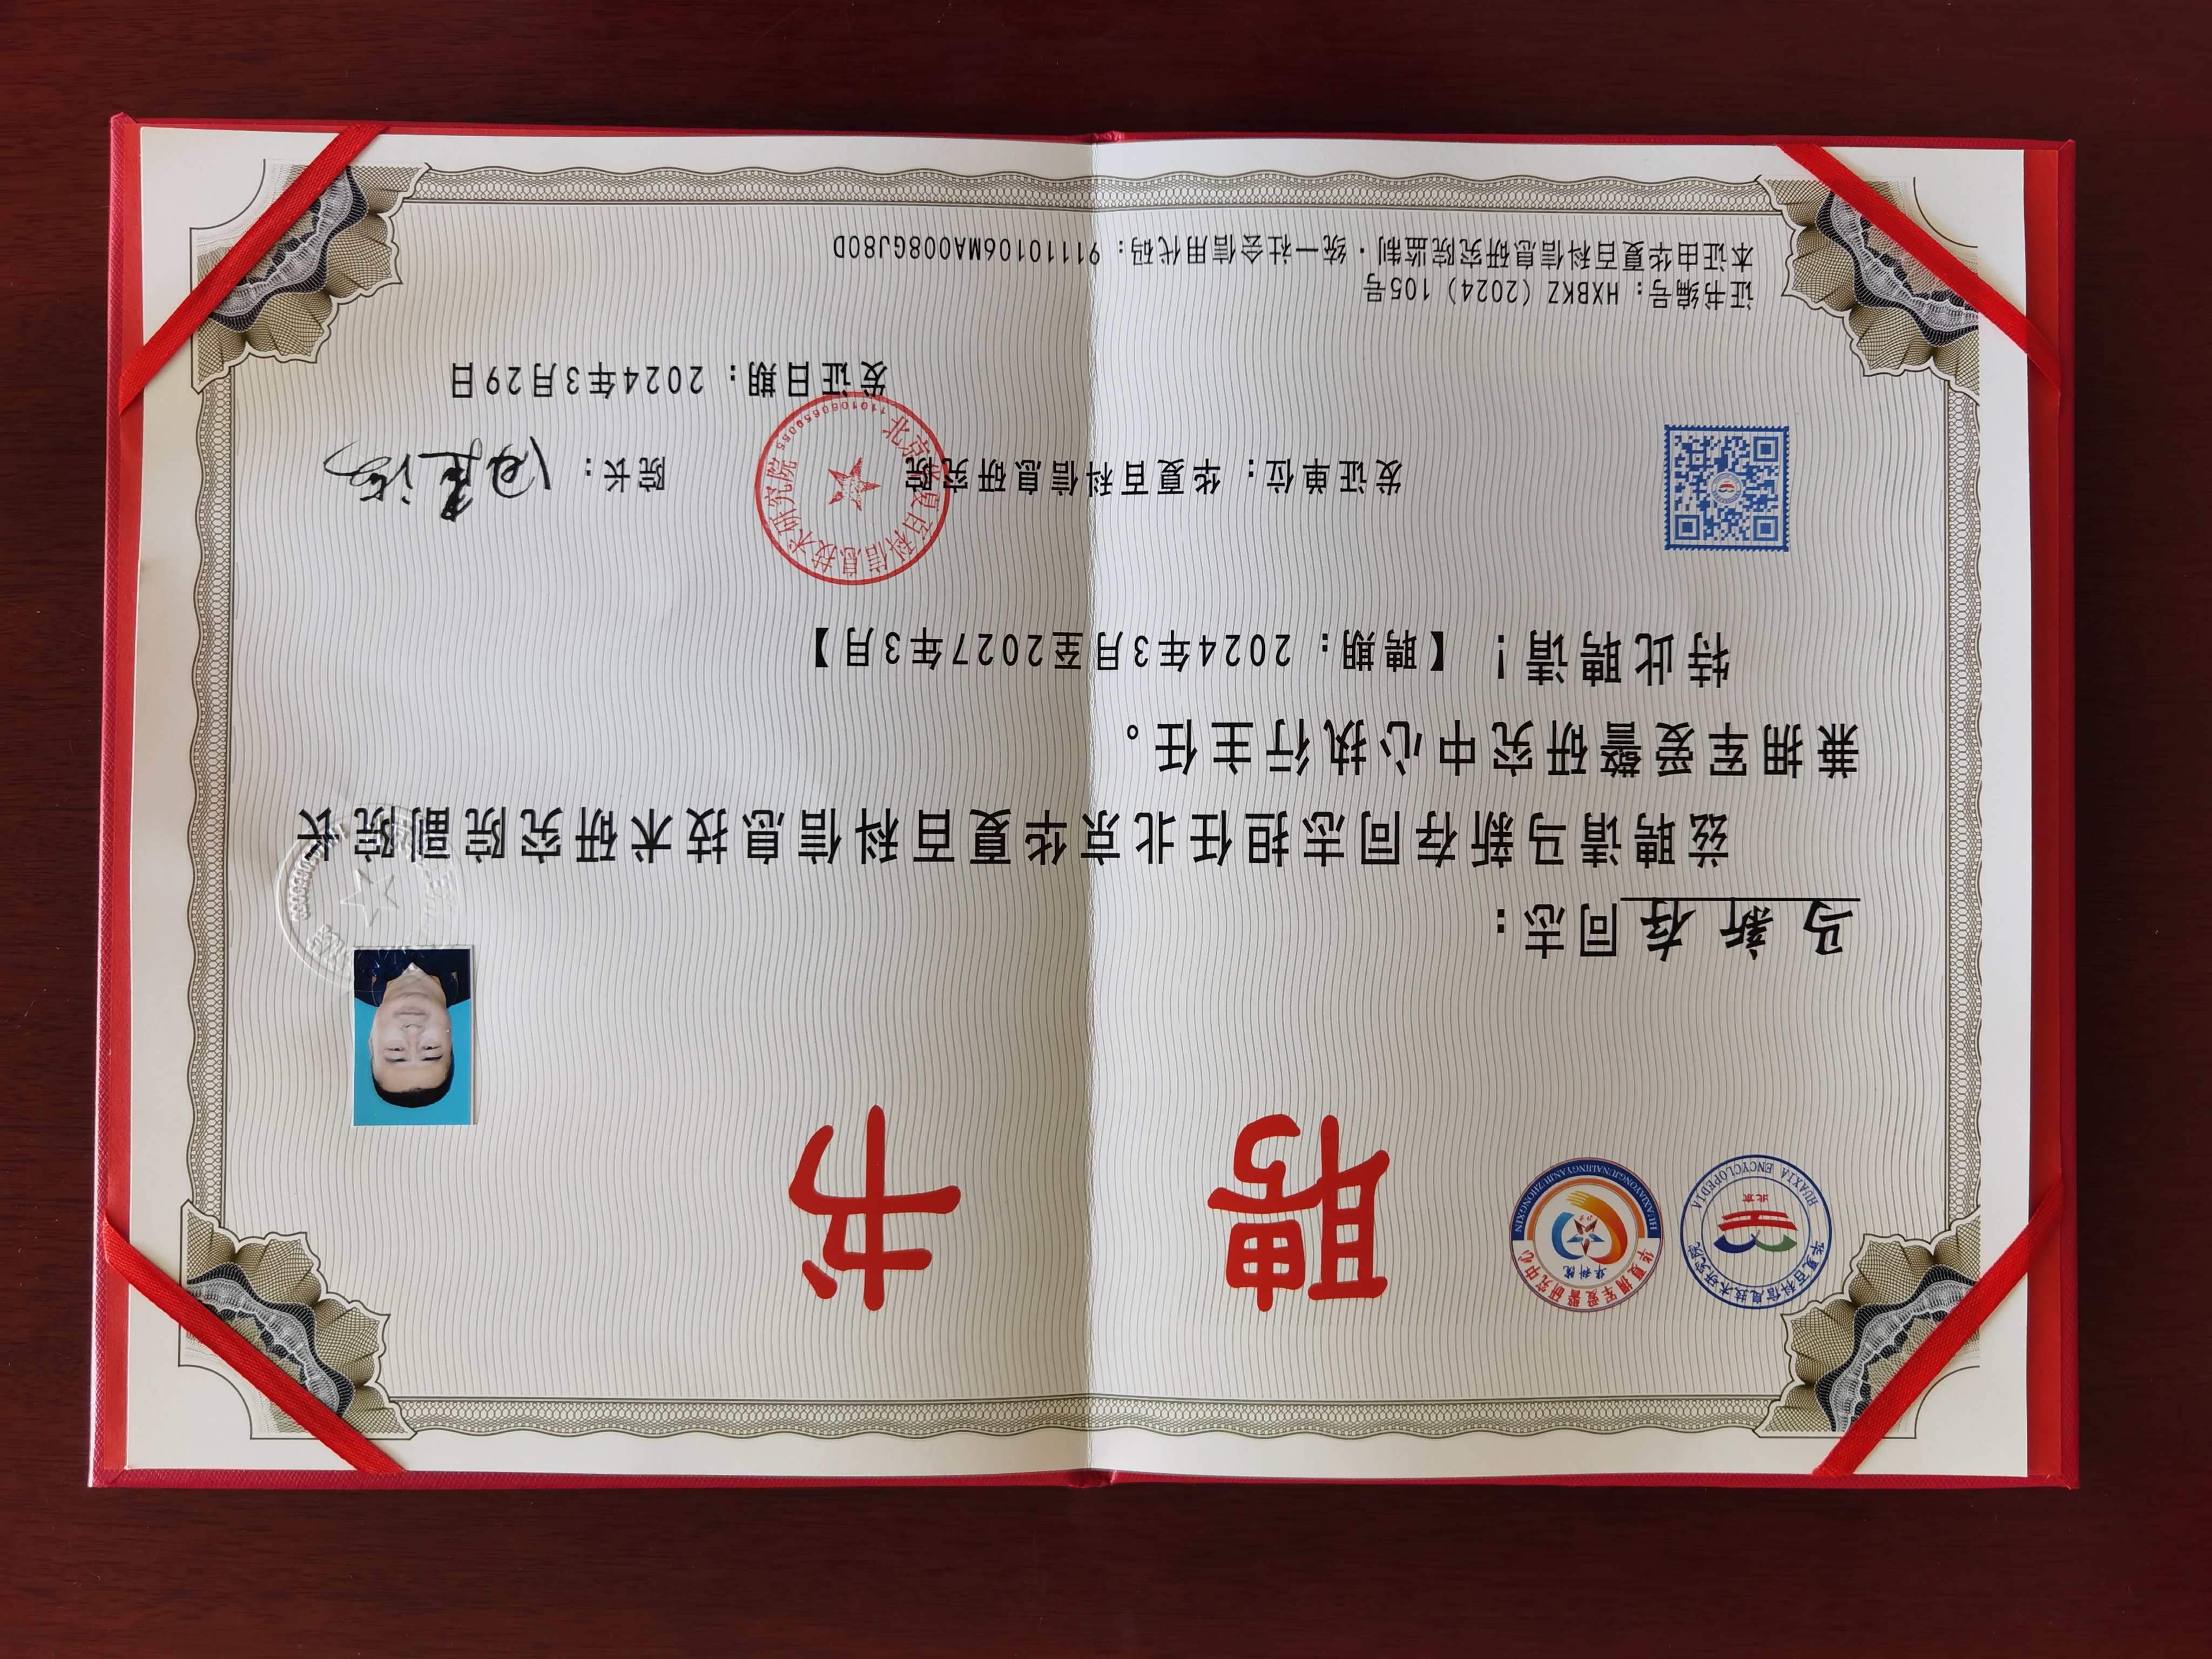 华夏百科信息技术研究院
北京
HUAXIA ENCYCLOPEDIA
华夏拥军爱警研究中心
华科院
HUAXIAYONGJUNAIJINGYANJIUZHONGXIN
聘书
马新存同志：
兹聘请马新存同志担任北京华夏百科信息技术研究院副院长
兼拥军爱警研究中心执行主任。
特此聘请！【聘期：2024年3月至2027年3月】
发证单位：华夏百科信息研究院 院长：
北京华夏百科信息技术研究院
发证日期：2024年3月29日
证书编号：HXBKZ（2024）105号
本证由华夏百科信息研究院监制·统一社会信用代码：91110106MA008GJ80D